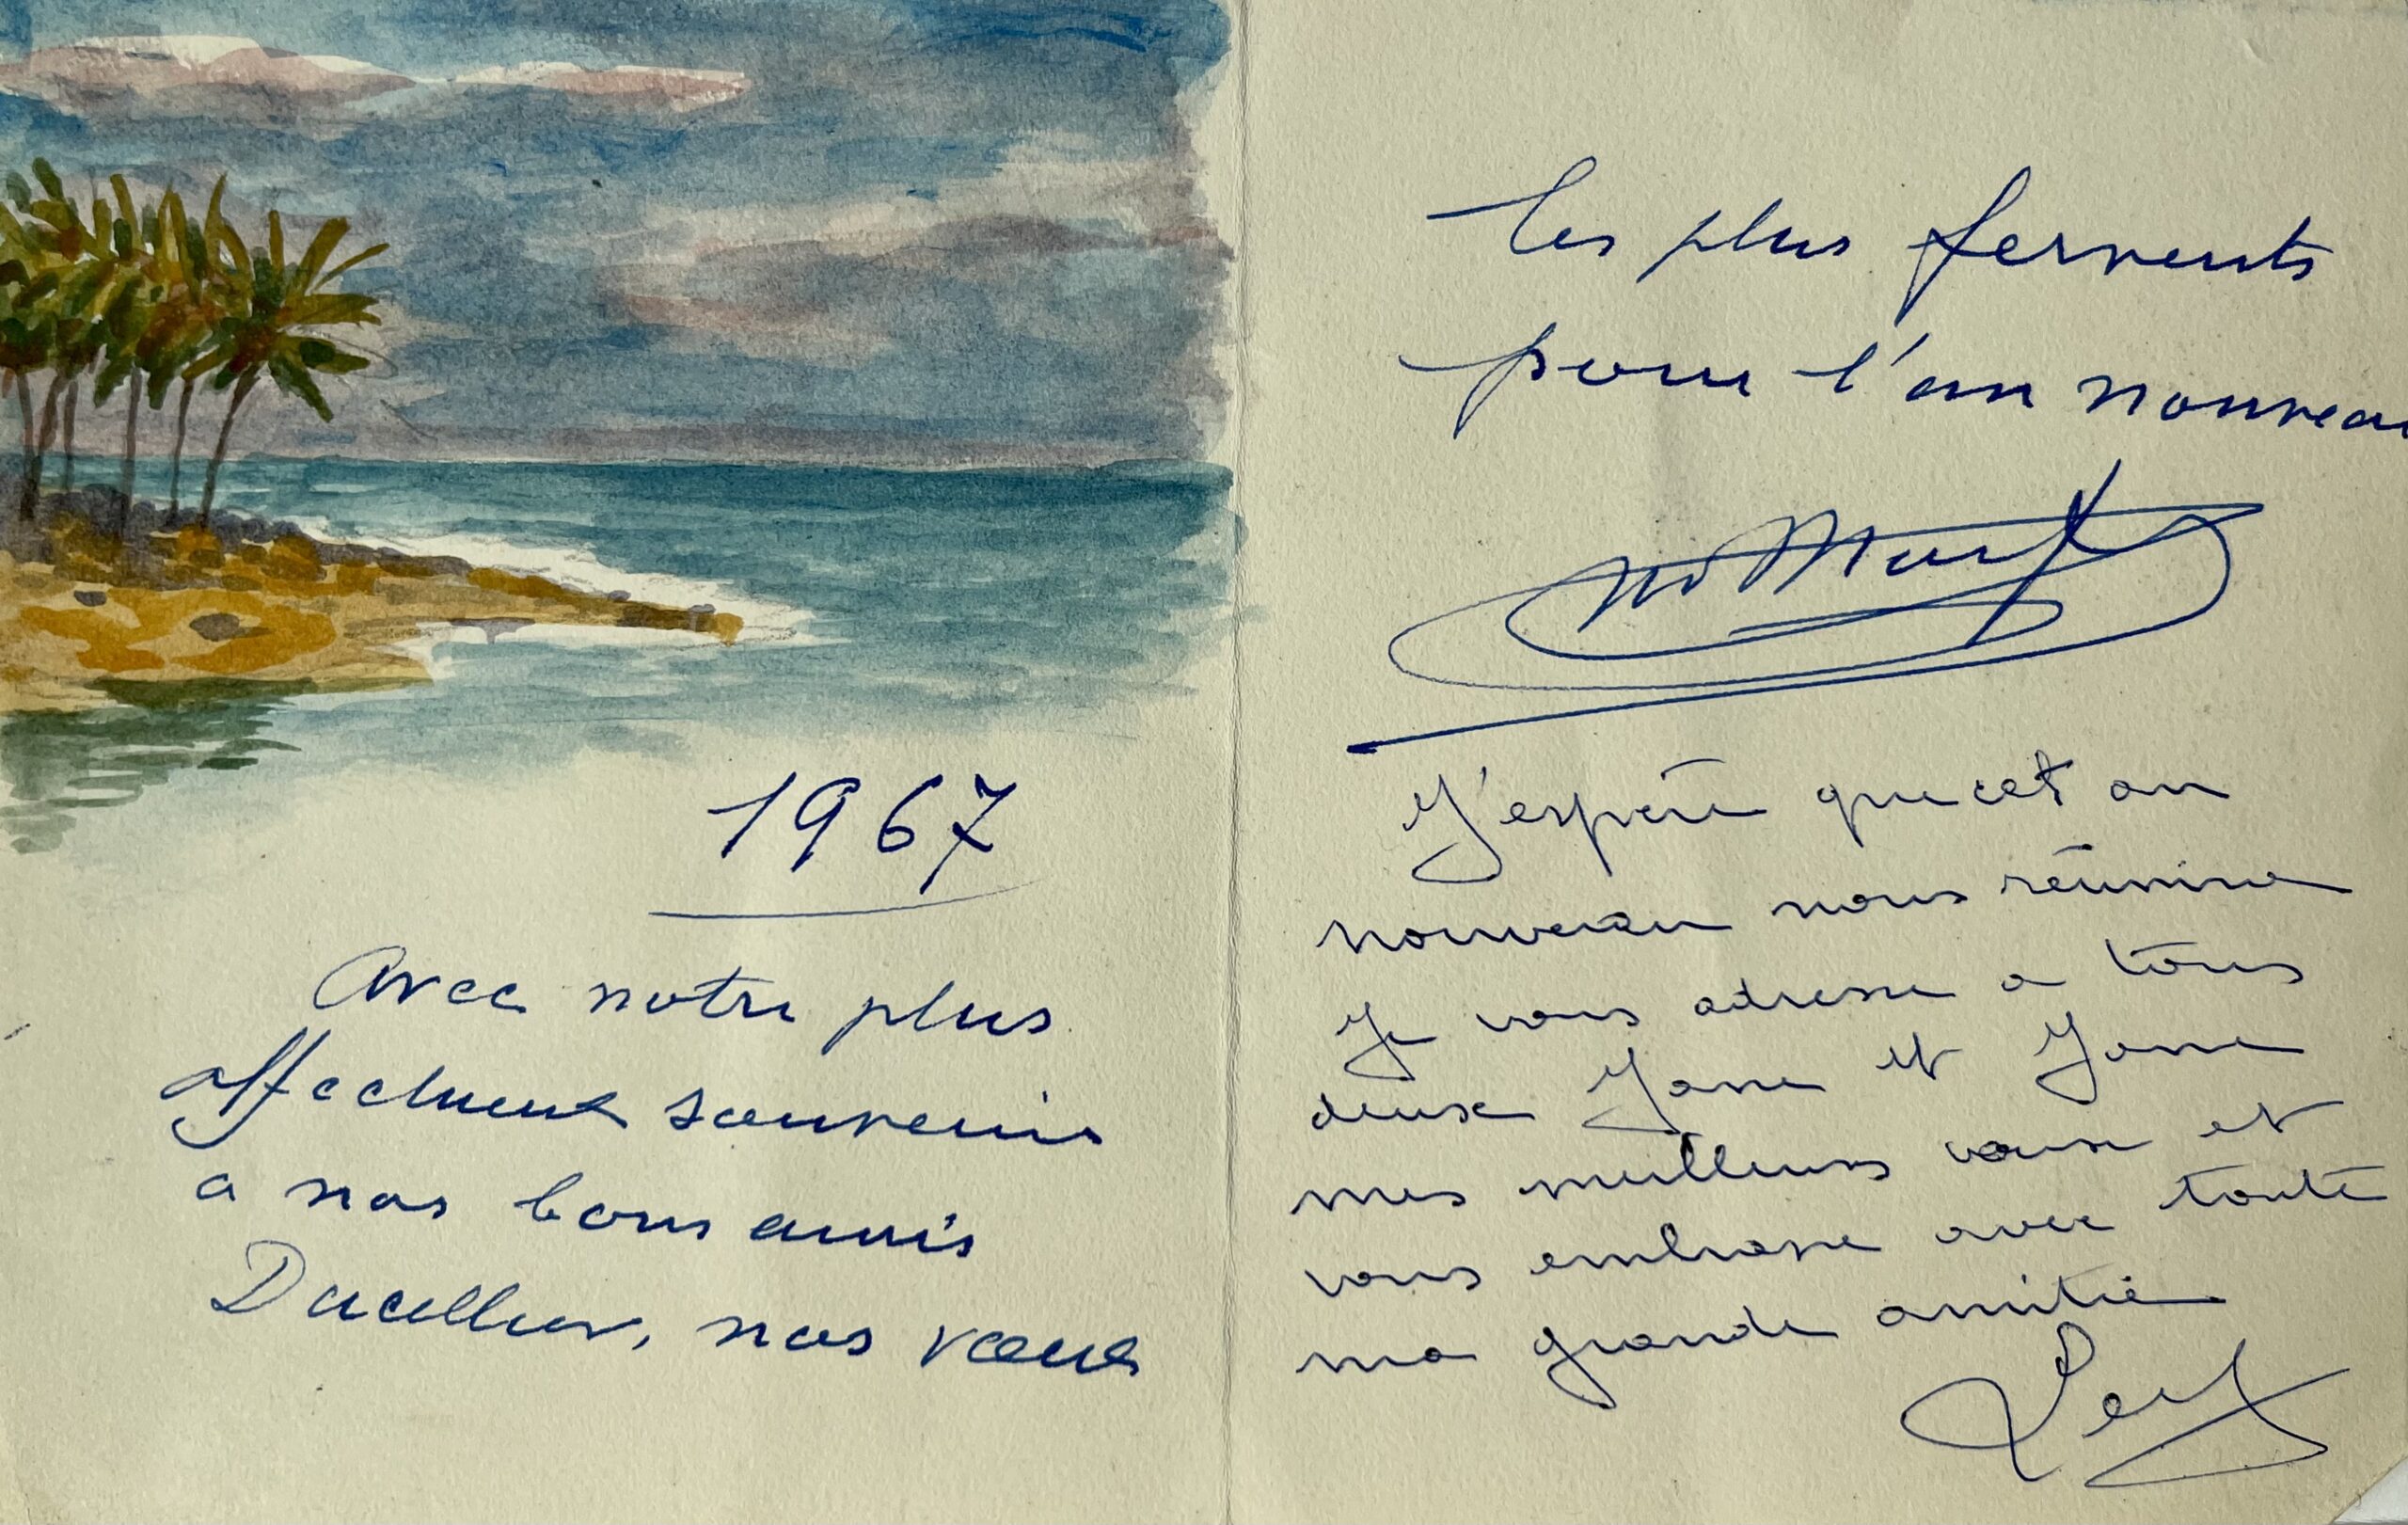 1967
Avec notre plus
affectueux souvenir
a nos bons amis
Ducellier, nos vœux
les plus fervents
pour l'an nouveau
J'espère que cet an
nouveau nous réunira
Je vous adresse a tous
deux Jane et Jane
mes meilleurs vœux et
vous embrasse avec toute
ma grande amitié